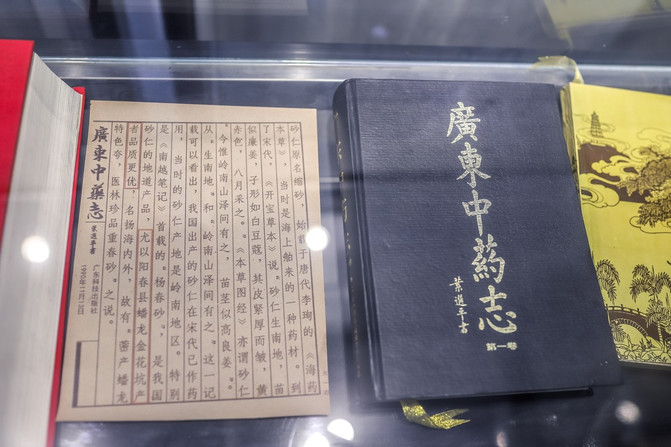 砂仁原名缩砂，始载于唐代李珣的《海药
本草》，当时是海上舶来的一种药材。到
了宋代，《开宝草本》说。砂仁生南地，苗
似廉姜，子形如白豆蔻，其皮紧厚而皱，黄
赤色，八月采之。《本草图经》亦谓砂仁
今惟岭南山泽间有之，苗茎似高良姜。
从，生南地。和岭南山泽间有之。这一记
载可以看出，我国出产的砂仁在宋代已作药
用，当时的砂仁产地是岭南地区。特别
是《南越笔记》首载的。杨春砂。，是我国
砂仁的地道产品，尤以阳春县蟠龙金花坑产
者品质更优，名扬海内外，故有。产蟠龙
特色夸，医林珍品重春砂。之说。
廣東中藥志
葉選平書
广东科技出版社
廣東中药志
葉選平書
第一卷